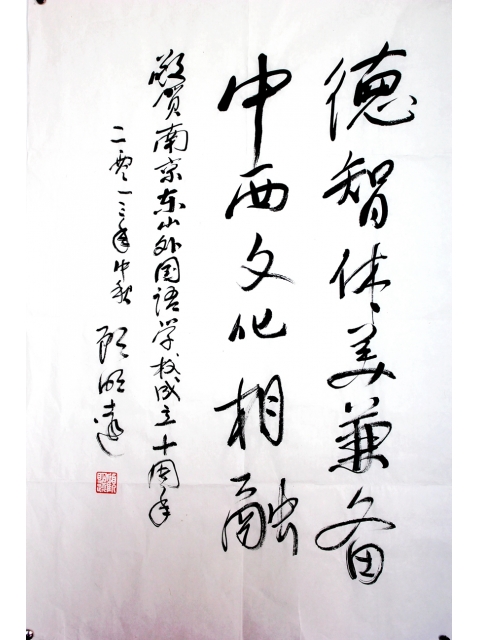 德智体美兼备
中西文化相融
敬贺南京东山外国语学校成立十周年
二零一三年中秋
顾明远